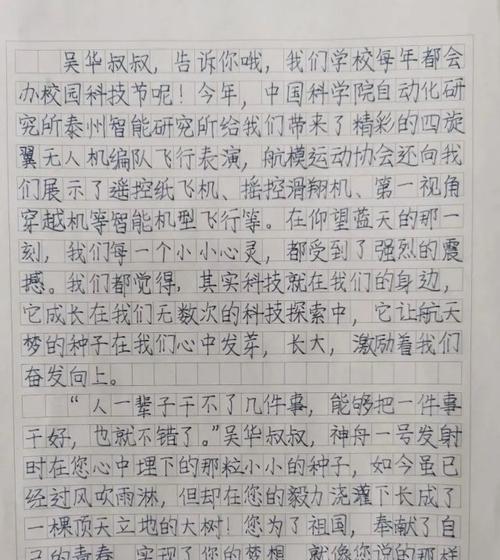 吴华叔叔，告诉你哦，我们学校每年都会
办校园科技节呢！今年，中国科学院自动化研
究所泰州智能研究所给我们带来了精彩的四旋
翼无人机编队飞行表演，航模运动协会还向我
们展示了遥控纸飞机、摇控滑翔机、第一视角
穿越机等智能机型飞行等。在仰望蓝天的那一
刻，我们每一个小小心灵，都受到了强烈的震
撼。我们都觉得，其实科技就在我们的身边，
它成长在我们无数次的科技探索中，它让航天
梦的种子在我们心中发芽，长大，激励着我们
奋发向上。
“人一辈子干不了几件事，能够把一件事
干好，也就不错了。”吴华叔叔，神舟一号发射
时在您心中埋下的那粒小小的种子，如今虽已
经过风吹雨淋，但却在您的毅力浇灌下长成了
一棵顶天立地的大树！您为了祖国，奉献了自
己的青春，实现了您的梦想，就像您说的那样